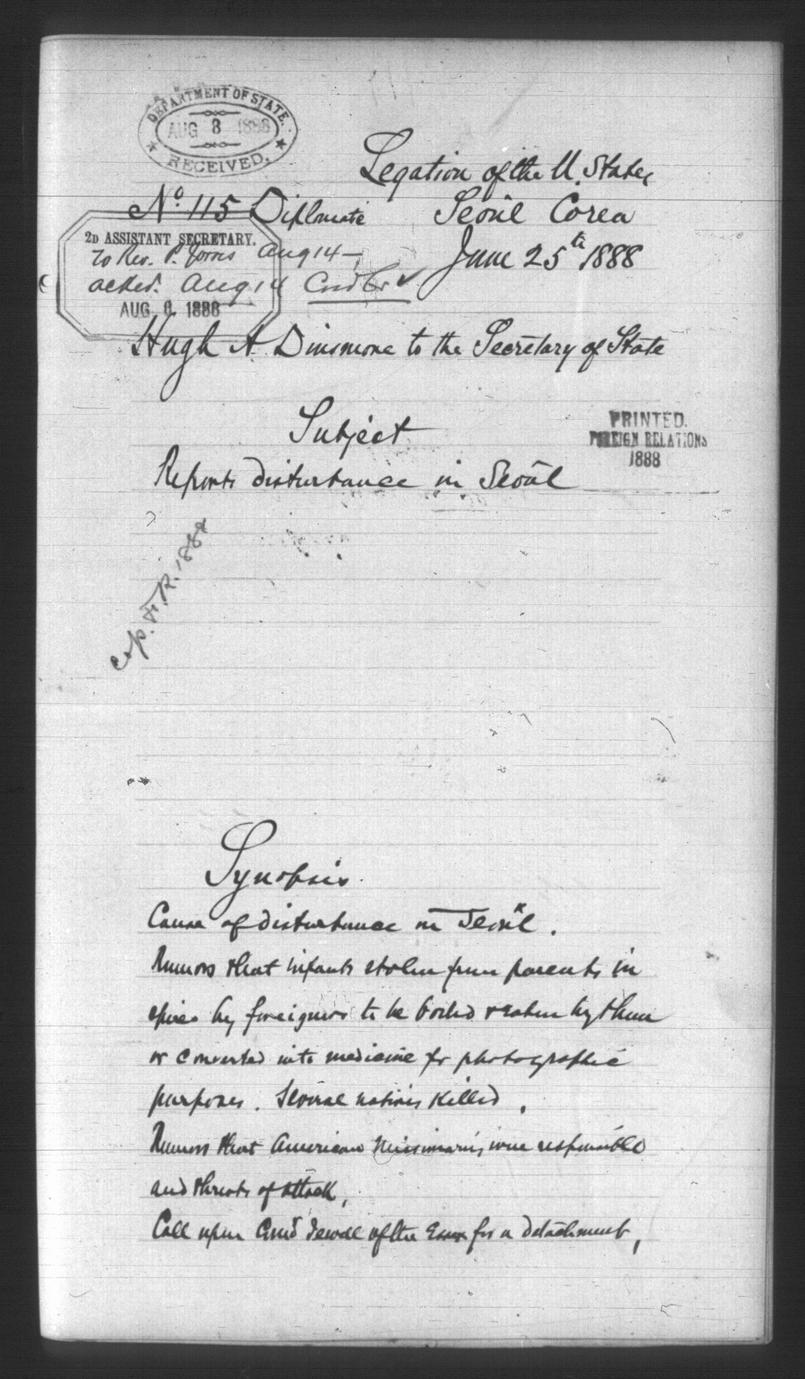 DEPARTMENT OF STATE.
AUG 8 1888
RECEIVED.
Legation of the U. States
No. 115 Diplomatic Seoul Corea
2D ASSISTANT SECRETARY.
to Rev. P. Aug 14 —
June 25th 1888
acked. Aug 14
AUG 1888
Hugh A. Dinsmore to the Secretary of State
Subject
PRINTED.
FOREIGN RELATIONS
1888
Reports disturbance in Seoul
F. R. 1888
Synopsis.
Cause of disturbance in Seoul.
Rumors that infants stolen from parents in
by foreigners to be boiled & eaten by them
or converted into medicine for photographic
purposes. Several natives killed.
Rumors that American Missionaries were responsible
and threats of attack,
Call upon Jewell of the Essex for a detachment,